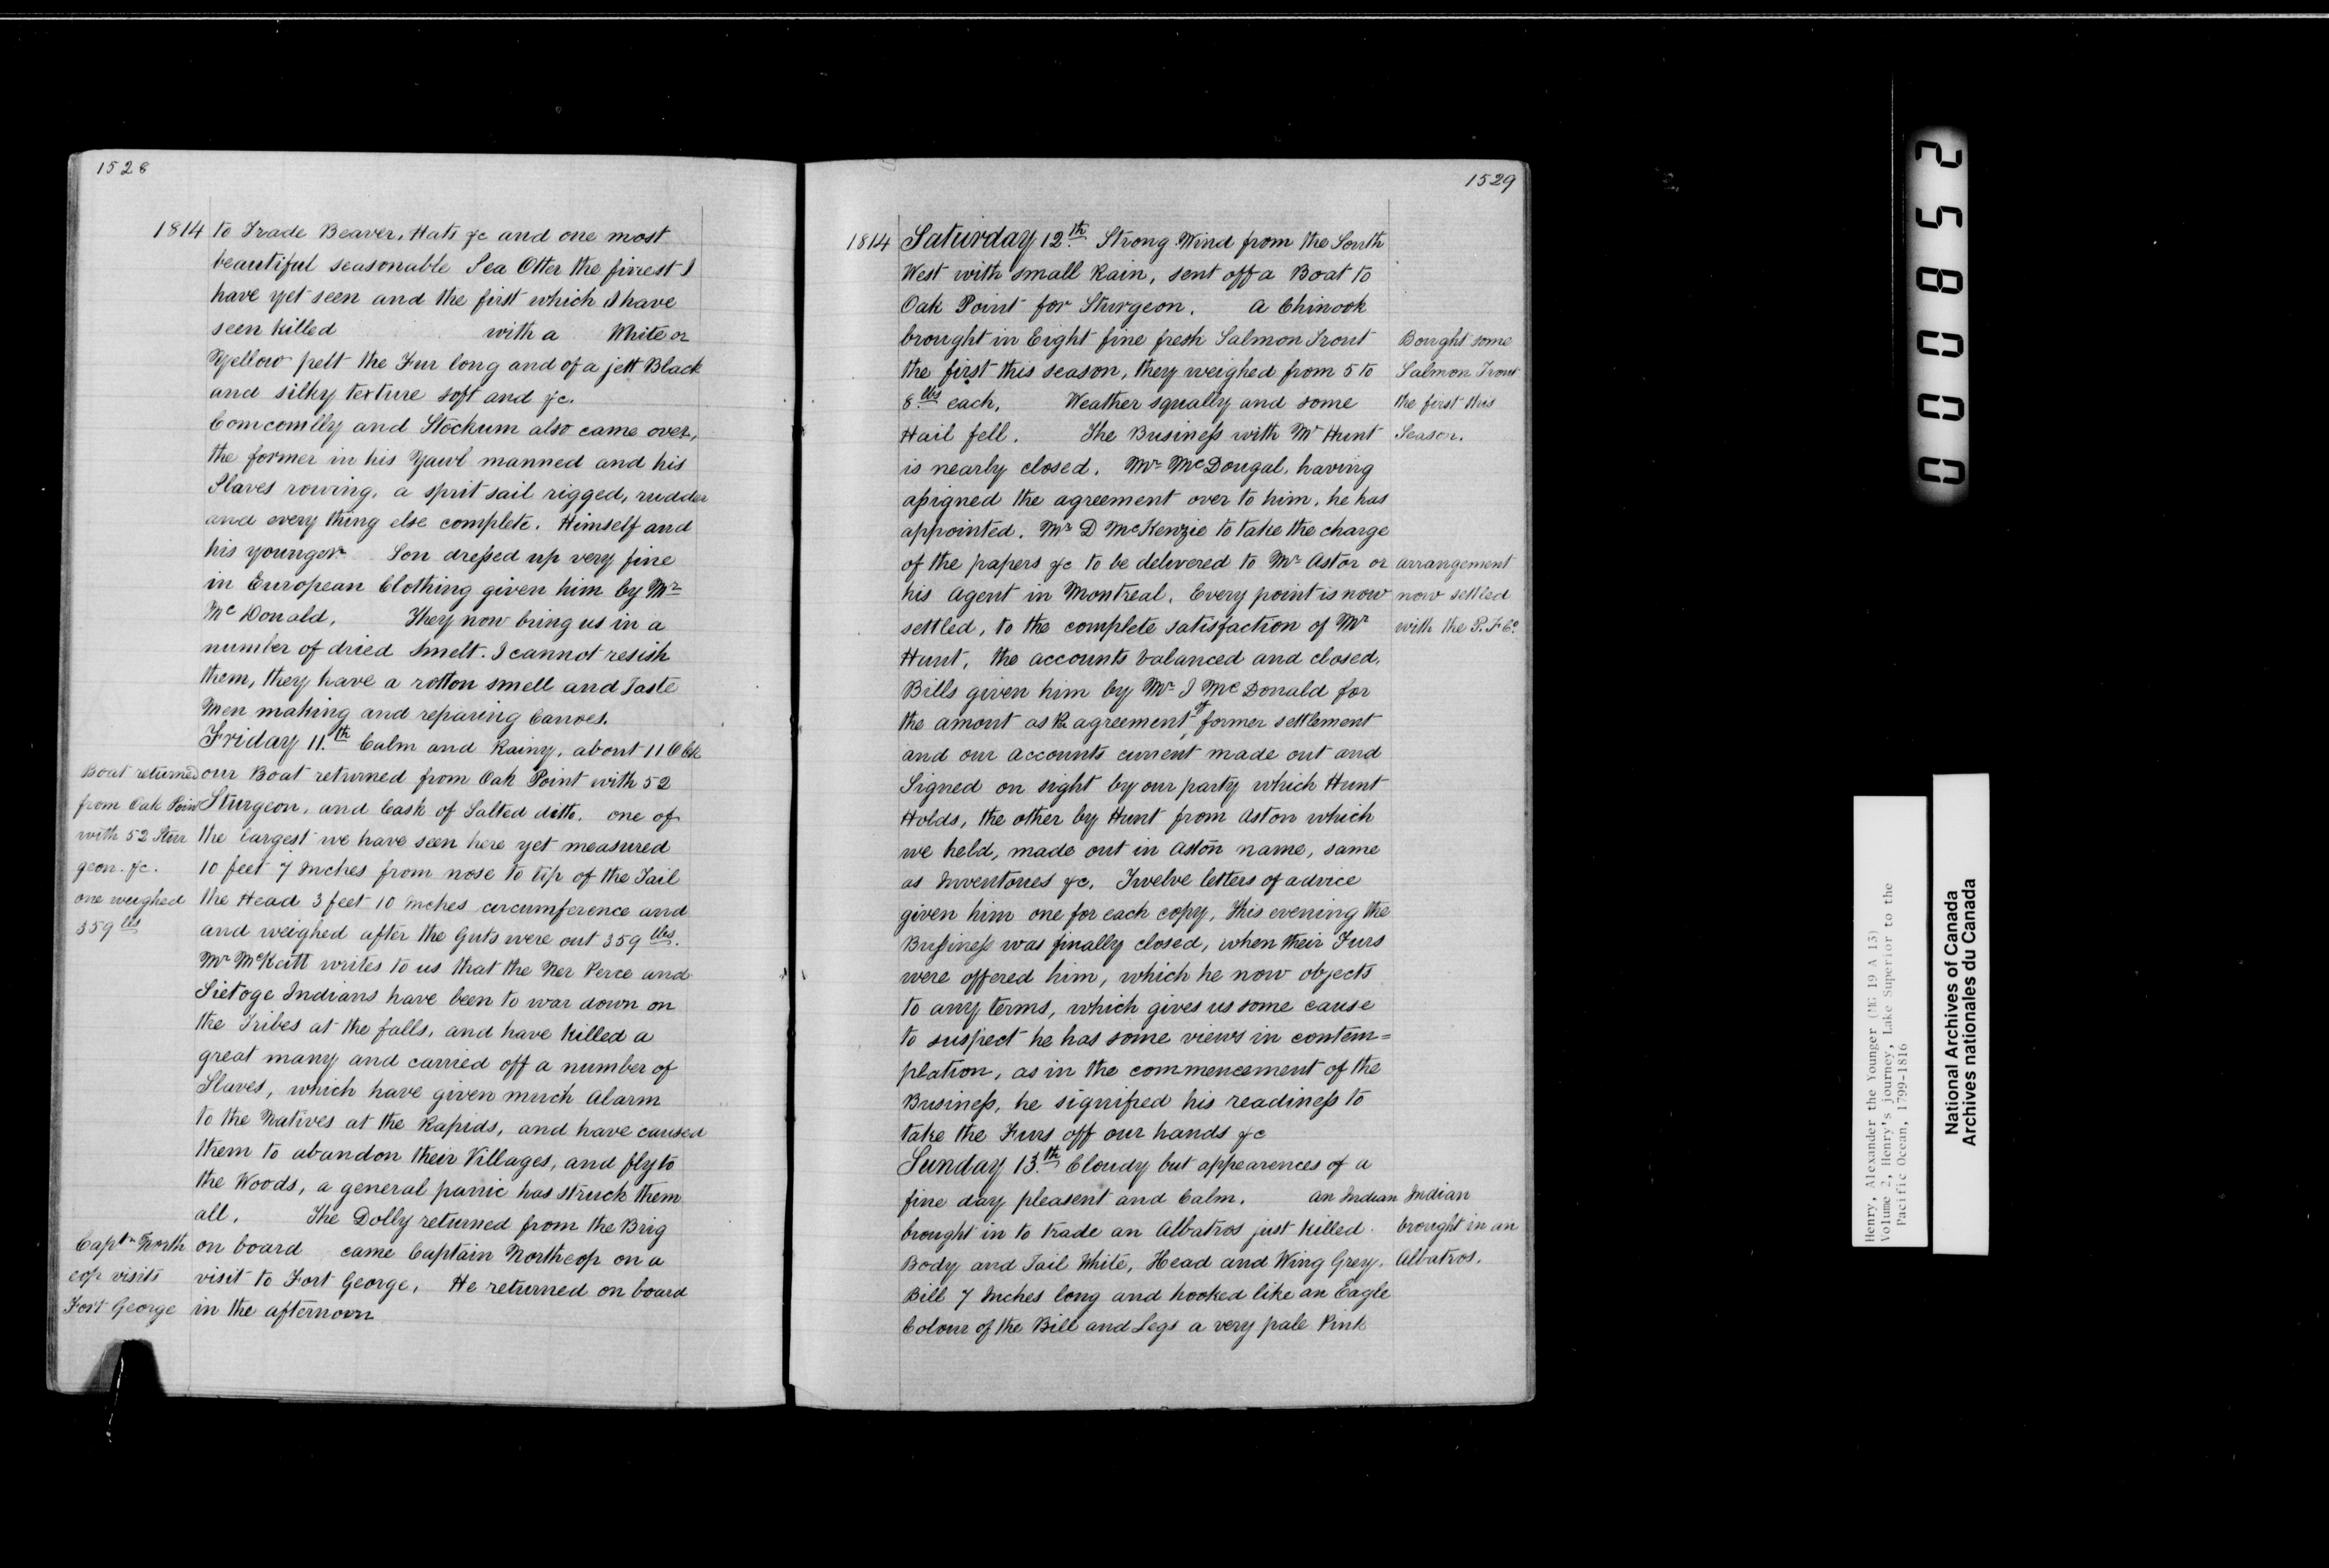 1528
1814 to Trade Beaver, Hats &c and one most
beautiful seasonable Sea Otter the finest I
have yet seen and the first which I have
seen killed with a White or
Yellow pelt the Fur long and of a jett Black
and silky texture soft and &c.
Comcomlly and Stockum also came over,
the former in his Yawl manned and his
Slaves rowing, a sprit sail rigged, rudder
and every thing else complete. Himself and
his younger Son dressed up very fine
in European Clothing given him by Mr
Mc Donald, They now bring us in a
number of dried Smelt. I cannot resish
them, they have a rotton smell and Taste
Men making and reparing Canoes.
Friday 11.th Calm and Rainy, about 11 O Clk
Boat returned our Boat returned from Oak Point with 52
from Oak Poin Sturgeon, and Cask of Salted ditto. one of
with 52 Stur the largest we have seen here yet measured
geon. &c. 10 feet 7 Inches from nose to tip of the Tail
one weighed the Head 3 feet 10 Inches circumference and
359 lbs and weighed after the Guts were out 359 lbs.
Mr McKeitt writes to us that the Ner Perce and
Sietoge Indians have been to war down on
the Tribes at the falls, and have killed a
great many and carried off a number of
Slaves, which have given much Alarm
to the Natives at the Rapids, and have caused
them to abandon their Villages, and fly to
the Woods, a general panic has struck them
all. The Dolly returned from the Brig
Captn North on board came Captain Northcop on a
cop visits visit to Fort George, He returned on board
Fort George in the afternoon
1529
1814 Saturday 12.th Strong Wind from the South
West with small Rain, sent off a Boat to
Oak Point for Sturgeon. A Chinook
brought in Eight fine fresh Salmon Trout Bought some
the first this season, they weighed from 5 to Salmon Trout
8 lbs each, Weather squally and some the first this
Hail fell. The Business with Mr Hunt Season.
is nearly closed. Mr McDougal, having
assigned the agreement over to him, he has
appointed. Mr D McKenzie to take the charge
of the papers &c to be delivered to Mr Astor or arrangement
his Agent in Montreal. Every point is now now settled
settled, to the complete satisfaction of Mr with the P. F Co.
Hunt, the accounts balanced and closed,
Bills given him by Mr J McDonald for
the amont as Pr agreement of former settlement
and our accounts current made out and
Signed on sight by our party which Hunt
Holds, the other by Hunt from Aston which
we held, made out in Aston name, same
as Inventories &c. Twelve letters of advice
given him one for each copy, This evening the
Business was finally closed, when their Furs
were offered him, which he now objects
to any terms, which gives us some cause
to suspect he has some views in contem=
plation, as in the commencement of the
Business, he signified his readiness to
take the Furs off our hands &c
Sunday 13.th Cloudy but appearences of a
fine day pleasent and Calm. an Indian Indian
brought in to trade an Albatros just killed. brought in an
Body and Tail White, Head and Wing Grey. Albatros.
Bill 7 Inches long and hooked like an Eagle
Colour of the Bill and Legs a very pale Pink
000852
Henry, Alexander the Younger (MG 19 A 13)
Volume 2, Henry's journey, Lake Superior to the
Pacific Ocean, 1799-1816
National Archives of Canada
Archives nationales du Canada